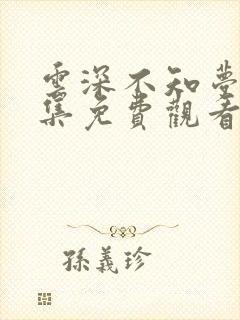 雲深不知夢
集免費觀看
孫義珍